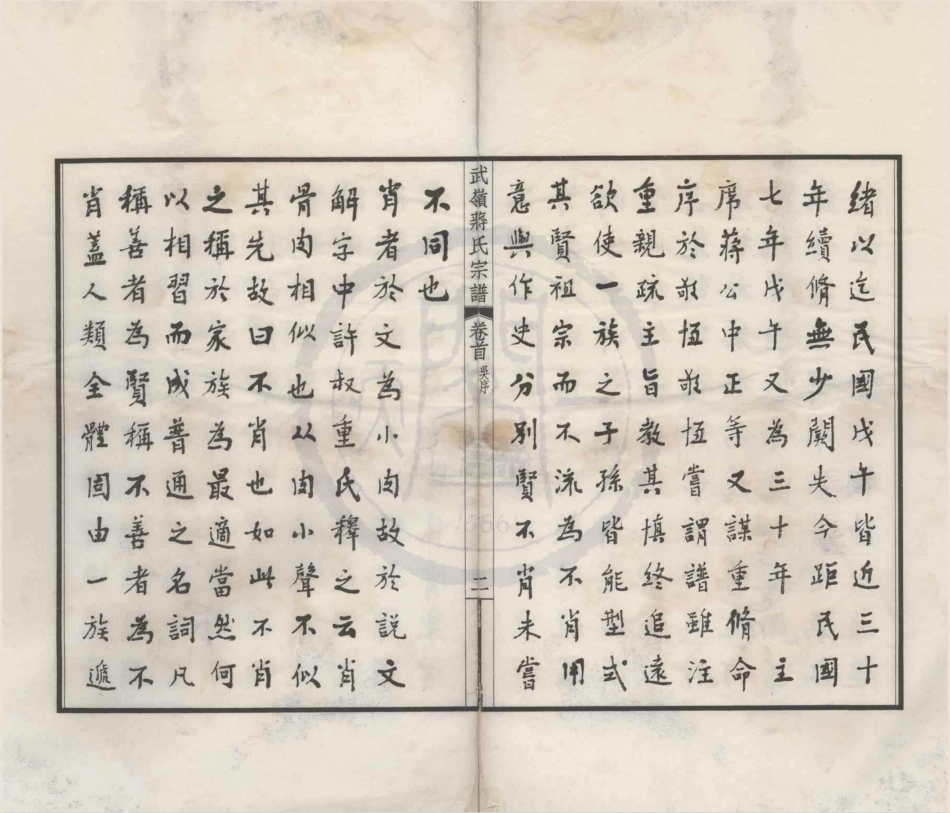 緒以迄民國戊午皆近三十
年續脩無少闕失今距民國
七年戊午又為三十年主
席蔣公中正等又謀重脩命
序於敬恆敬恆嘗謂譜雖注
重親疏主旨教其慎終追遠
欲使一族之子孫皆能型式
其賢祖宗而不流為不肖用
意與作史分別賢不肖未嘗
武嶺蔣氏宗譜 卷首 吳序 二
不同也
肖者於文為小肉故於說文
解字中許叔重氏釋之云肖
骨肉相似也从肉小聲不似
其先故曰不肖也如此不肖
之稱於家族為最適當然何
以相習而成普通之名詞凡
稱善者為賢稱不善者為不
肖蓋人類全體固由一族遞
1766